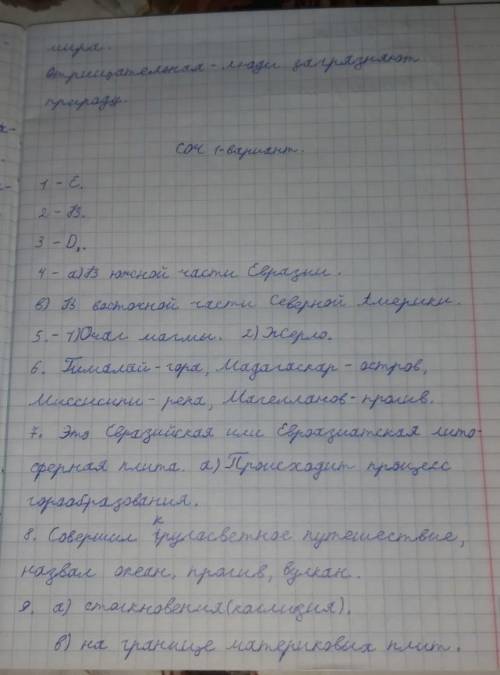 мира.
Отрицательная - люди загрязняют
природу.
СОЧ 1-вариант.
1 - E.
2 - B.
3 - D.
4 - а) В южной части Евразии.
в) В восточной части Северной Америки.
5. - 1) Очаг магмы. 2) Жерло.
6. Гималай - гора, Мадагаскар - остров,
Миссисипи - река, Магелланов - пролив.
7. Это Евразийская или Евроазиатская лито-
сферная плита. а) Происходит процесс
горообразования.
8. Совершил кругосветное путешествие,
назвал океан, пролив, вулкан.
9. а) столкновения (коллизия).
в) на границе материковых плит.